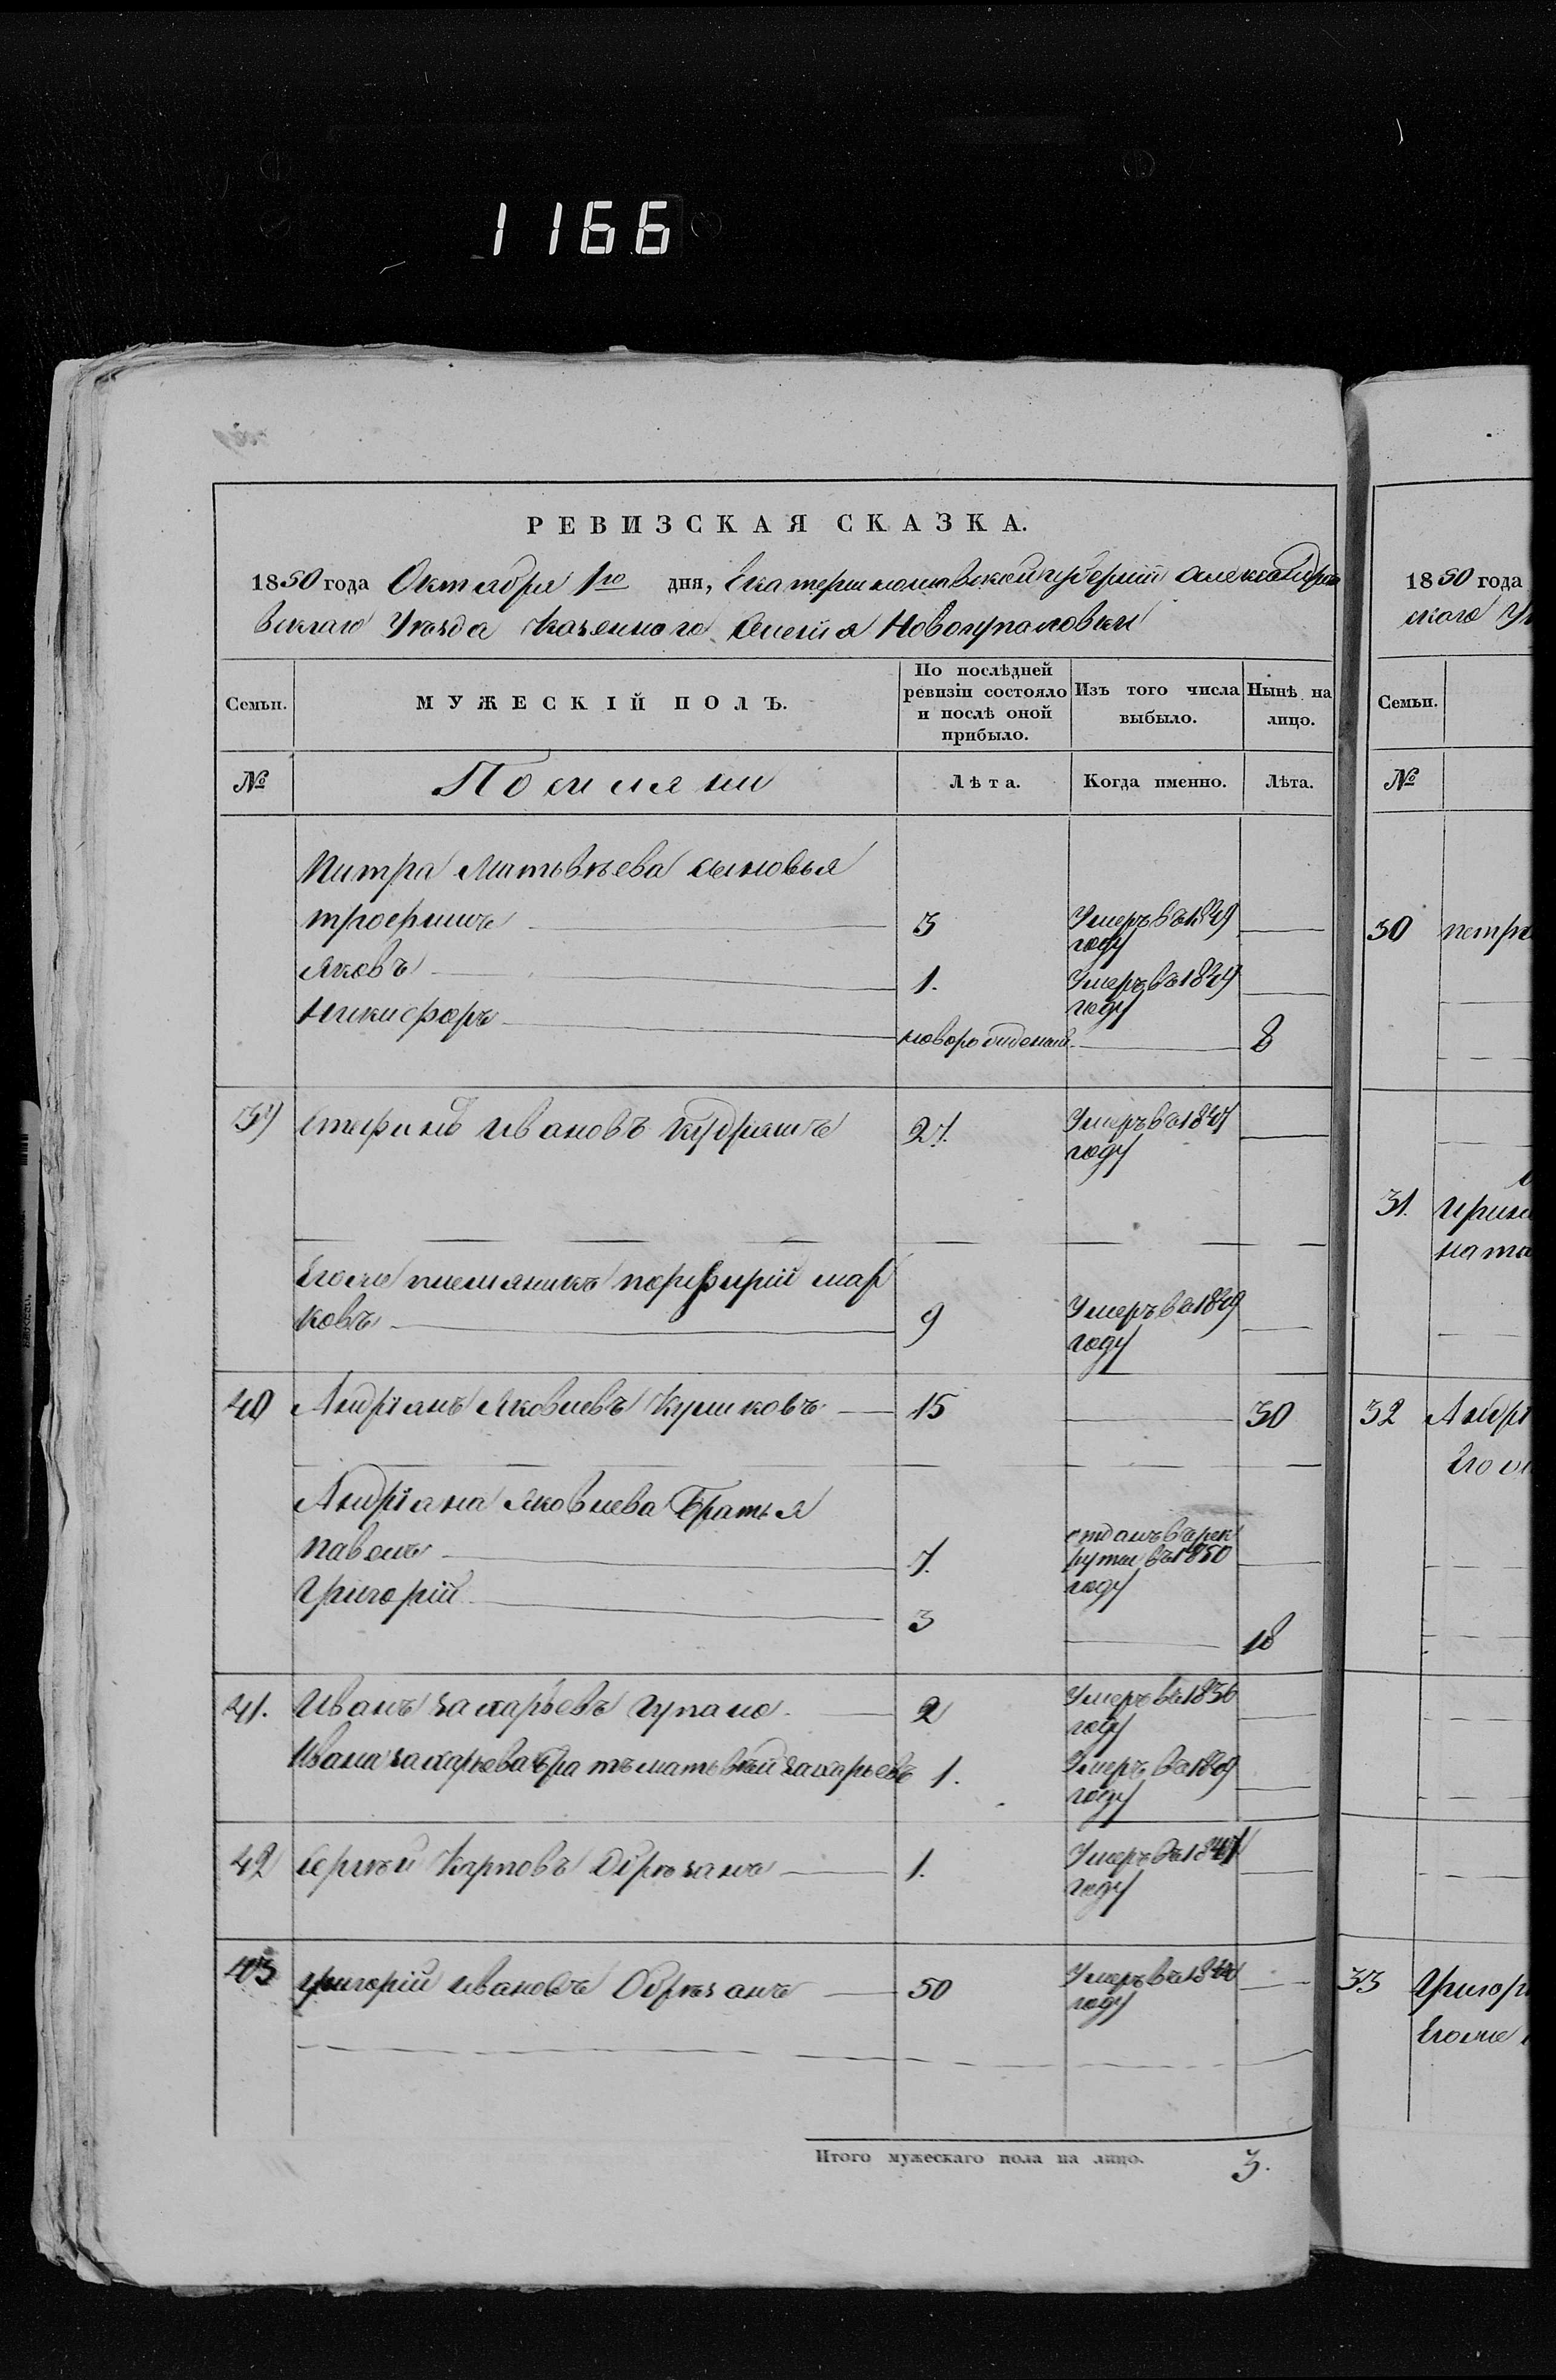 1166
РЕВИЗСКАЯ СКАЗКА.
1850 года Октября 1го дня, Екатеринославской губернии Александро
вскаго Уѣзда Казеннаго Селенія Новогупаловки
Семьи. МУЖЕСКІЙ ПОЛЪ. По послѣдней ревизіи состояло и послѣ оной прибыло. Изъ того числа выбыло. Нынѣ на лицо.
№ Поселяни Лѣта. Когда именно. Лѣта.
Питра Матьвѣева сыновья
трофимъ 3 Умеръ въ 1849 году
Яковъ 1. Умеръ в 1849 году
Никифоръ новорожденый 8
39 Стефанъ Ивановъ Кудряшъ 27. Умеръ в 1847 году
Егоже племяникъ порфирій мар
ковъ 9 Умеръ в 1849 году
40 Андріанъ Яковлевъ Кушковъ 15 30
Андріана Яковлева Братья
павелъ 7. отданъ в рек
рути въ 1850
году
Григорій 3 18
41. Иванъ захарьевъ Гупало 2 Умеръ в 1836 году
Ивана захарьева братъ матьвѣй захарьевъ 1. Умеръ в 1849 году
42 Сергѣй Карповъ Обрѣзанъ 1. Умеръ в 1847 году
43 григорій ивановъ Обрѣзанъ 50 Умеръ в году
Итого мужескаго пола на лицо. 3.
1850 года
скаго
Семьи.
№
30 петра
31.
32 Андрі
33 Григор
Егоже